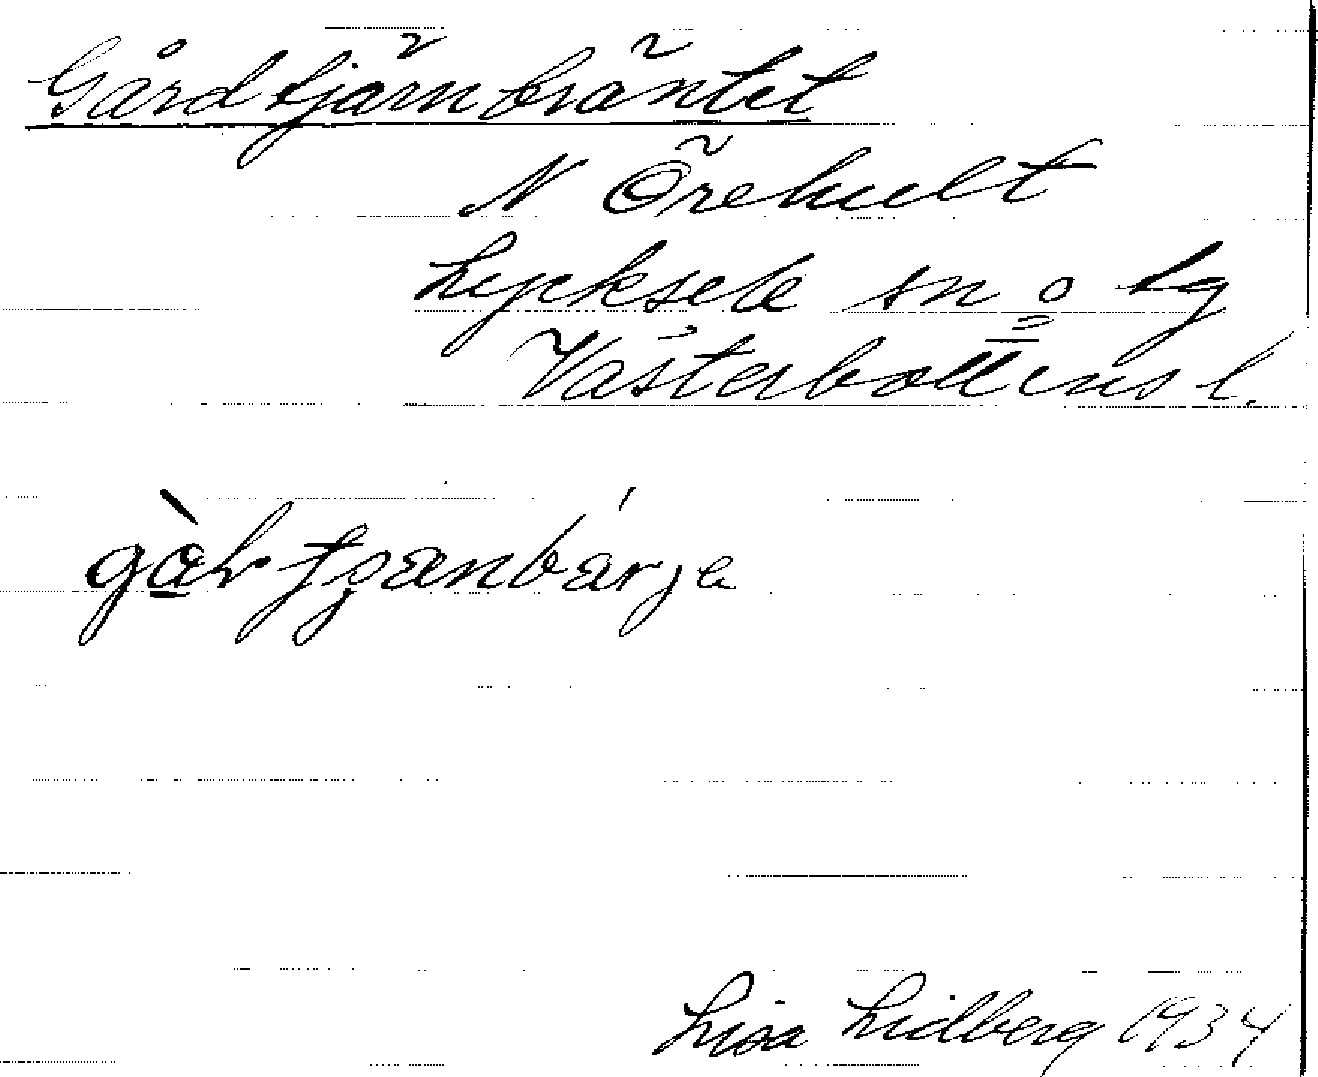 Gårdtjärnbräntet
N Örehult
Lycksele sn o lg
Västerbottens l.
Lisa Lidberg 1934